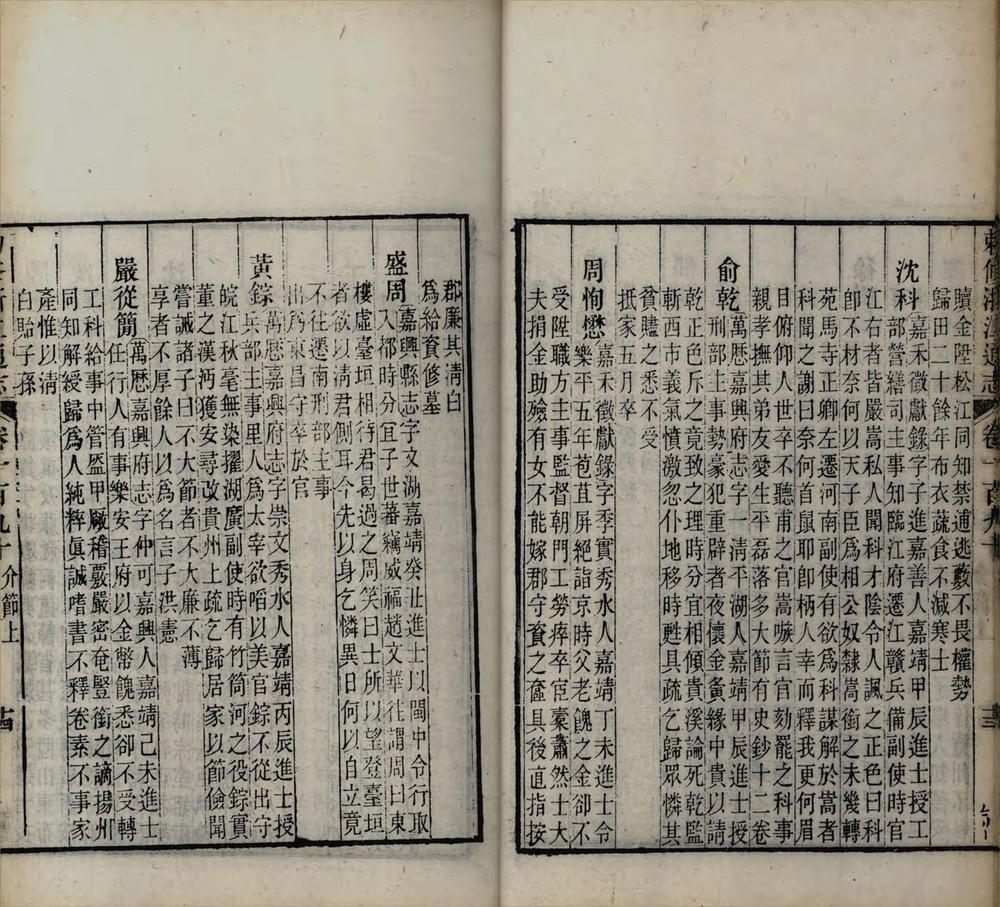 敕修浙江通志 卷一百九十
贖金陞松江同知禁逋逃藪不畏權勢
歸田二十餘年布衣蔬食不減寒士
沈科嘉禾徵獻錄字子進嘉善人嘉靖甲辰進士授工
部營繕司主事知臨江府遷江贛兵備副使時官
江右者皆嚴嵩私人聞科才陰令人諷之正色曰科
卽不材奈何以天子臣爲相公奴隸嵩銜之未幾轉
苑馬寺正卿左遷河南副使有欲爲科謀解於嵩者
科聞之謝曰奈何首鼠耶卽柄人幸而釋我更何眉
目俯仰人世卒不聽甫之官嵩嗾言官劾罷之科事
親孝撫其弟友愛生平磊落多大節有史鈔十二卷
俞乾萬歷嘉興府志字一清平湖人嘉靖甲辰進士授
刑部主事勢豪犯重辟者夜懷金夤緣中貴以請
乾正色斥之竟致之理時分宜相傾貴溪論死乾監
斬西市義氣憤激忽仆地移時甦具疏乞歸眾憐其
貧贐之悉不受
抵家五月卒
周恂懋嘉禾徵獻錄字季實秀水人嘉靖丁未進士令
樂平五年苞苴屏絕詣京時父老餽之金卻不
受陞職方主事監督朝門工勞瘁卒宦橐蕭然士大
夫捐金助殮有女不能嫁郡守資之奩具後直指按
郡廉其清白
爲給資修墓
盛周嘉興縣志字文湖嘉靖癸丑進士以閩中令行取
入都時分宜子世蕃竊威福趙文華往謂周曰東
樓虛臺垣相待君曷過之周笑曰士所以望登臺垣
者欲以清君側耳今先以身乞憐異日何以自立竟
不往遷南刑部主事
出爲東昌守卒於官
黃錝萬歷嘉興府志字崇文秀水人嘉靖丙辰進士授
兵部主事里人爲太宰欲啗以美官錝不從出守
皖江秋毫無染擢湖廣副使時有竹筒河之役錝實
董之漢沔獲安尋改貴州上疏乞歸居家以節儉聞
嘗誡諸子曰不大節者不大廉不薄
享者不厚餘人以爲名言子洪憲
嚴從簡萬歷嘉興府志字仲可嘉興人嘉靖己未進士
任行人有事樂安王府以金幣餽悉卻不受轉
工科給事中管盔甲廠稽覈嚴密奄豎銜之謫揚州
同知解綬歸爲人純粹眞誠嗜書不釋卷素不事家
產惟以清
白貽子孫
卷一百九十 介節上